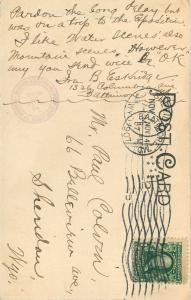 Pardon the long delay but
was on a trip to the Exposition.
I like Water scenes, also
Mountain scenes. However
any you send will be "O.K."
Ira B. Eskridge
1326 Columbia Ave
Baltimore
POST CARD
Mr. Paul Colson.
66 Ballview ave,
Sheridan,
Wyo.